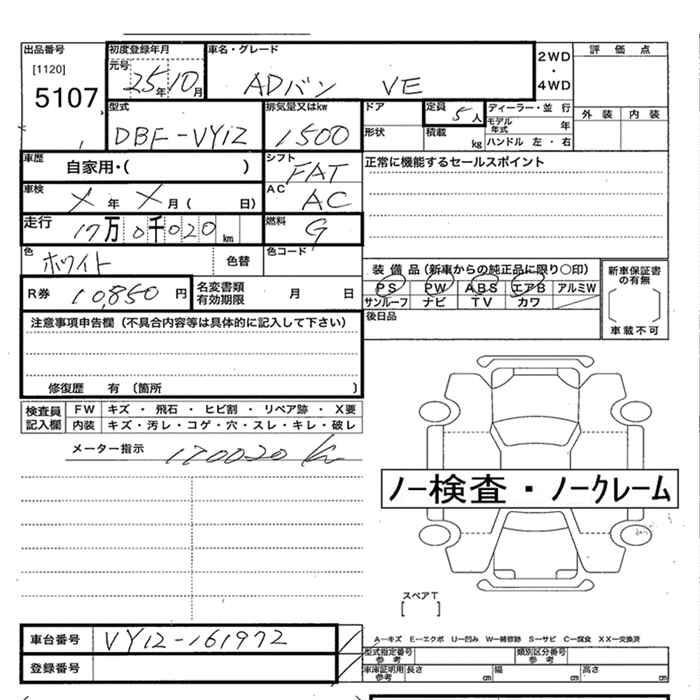 出品番号 初度登録年月 車名・グレード 評価点
[1120] 元号 25年10月 ADバン VE 2WD・4WD
5107 外装 内装
型式 排気量又はkw ドア 定員 5人 ディーラー・並行
DBF-VY12 1500 形状 積載 kg モデル年式 年
ハンドル 左・右
車歴 自家用・( ) シフト FAT 正常に機能するセールスポイント
車検 X年 X月( 日) AC AC
走行 17万0千020km 燃料 G
色 ホワイト 色替 色コード
装備品(新車からの純正品に限り○印) 新車保証書の有無
R券 10,850円 名変書類有効期限 月 日 PS PW ABS エアB アルミW
サンルーフ ナビ TV カワ 車載不可
注意事項申告欄(不具合内容等は具体的に記入して下さい) 後日品
修復歴 有(箇所 )
検査員記入欄 FW キズ・飛石・ヒビ割・リペア跡・X要
内装 キズ・汚レ・コゲ・穴・スレ・キレ・破レ
メーター指示 170020 km
ノー検査・ノークレーム
スペアT
[ ]
車台番号 VY12-161972 A―キズ E―エクボ U―凹み W―補修跡 S―サビ C―腐食 XX―交換済
型式指定番号 参考 類別区分番号 参考
登録番号 車庫証明用 参考 長さ cm 幅 cm 高さ cm